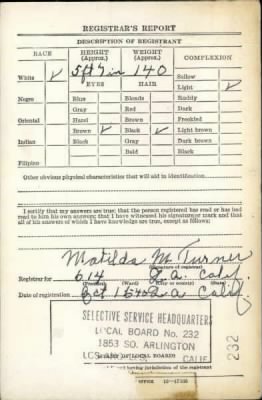 REGISTRAR'S REPORT
DESCRIPTION OF REGISTRANT
RACE HEIGHT (Approx.) WEIGHT (Approx.) COMPLEXION
White ✓ 5 ft 7 in 140 Sallow
EYES HAIR Light ✓
Negro Blue Blonde Ruddy
Gray Red Dark
Oriental Hazel Brown Freckled
Brown ✓ Black ✓ Light brown
Indian Black Gray Dark brown
Bald Black
Filipino
Other obvious physical characteristics that will aid in identification
I certify that my answers are true; that the person registered has read or has had
read to him his own answers; that I have witnessed his signature or mark and that
all of his answers of which I have knowledge are true, except as follows:
Matilda M. Turner
(Signature of registrar)
Registrar for 614 L.a. Calif.
(Precinct) (Ward) (City or county) (State)
Date of registration Oct 16 40 L.a. Calif
SELECTIVE SERVICE HEADQUARTERS
LOCAL BOARD No. 232
1853 SO. ARLINGTON
CALIF.
(STAMP OF LOCAL BOARD)
having jurisdiction of the registrant
232
OFFICE